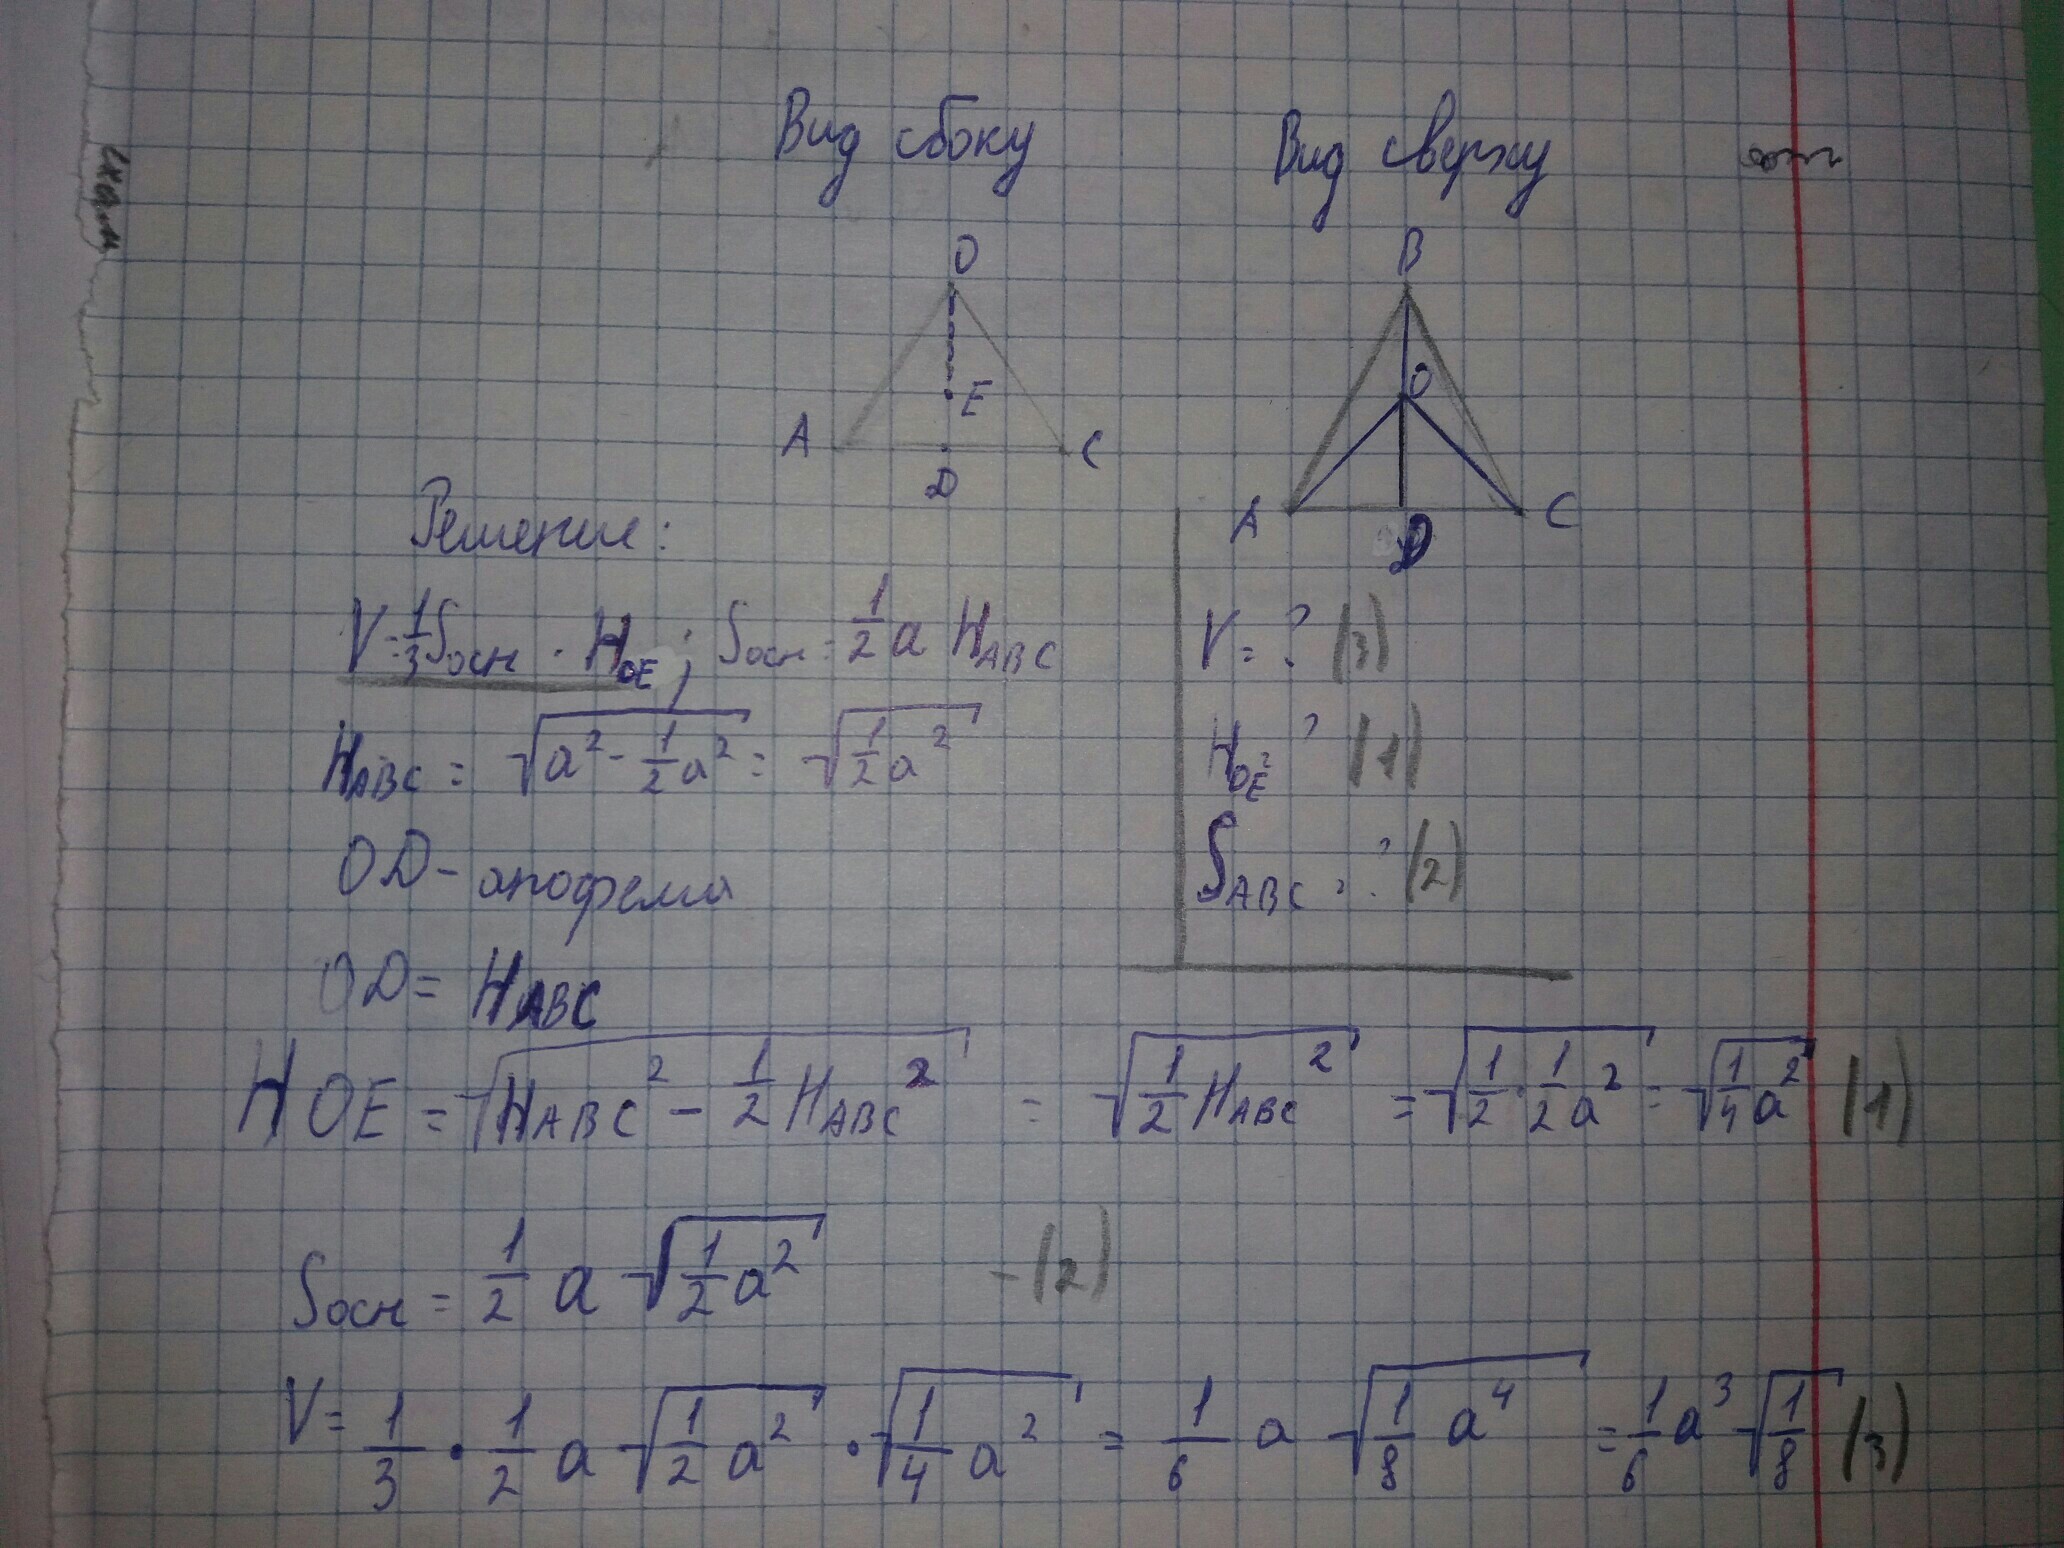 Вид сбоку
Вид сверху
O
E
A
C
D
B
O
A
C
D
Решение:
V=1/3 Sосн · H_OE ; Sосн = 1/2 a H_ABC
V = ? (3)
H_ABC = √(a² - 1/2 a²) = √(1/2 a²)
H_OE = ? (1)
OD - апофема
S_ABC = ? (2)
OD = H_ABC
H_OE = √(H_ABC² - 1/2 H_ABC²) = √(1/2 H_ABC²) = √(1/2 · 1/2 a²) = √(1/4 a²) (1)
Sосн = 1/2 a √(1/2 a²) - (2)
V = 1/3 · 1/2 a √(1/2 a²) · √(1/4 a²) = 1/6 a √(1/8 a⁴) = 1/6 a³ √(1/8) (3)